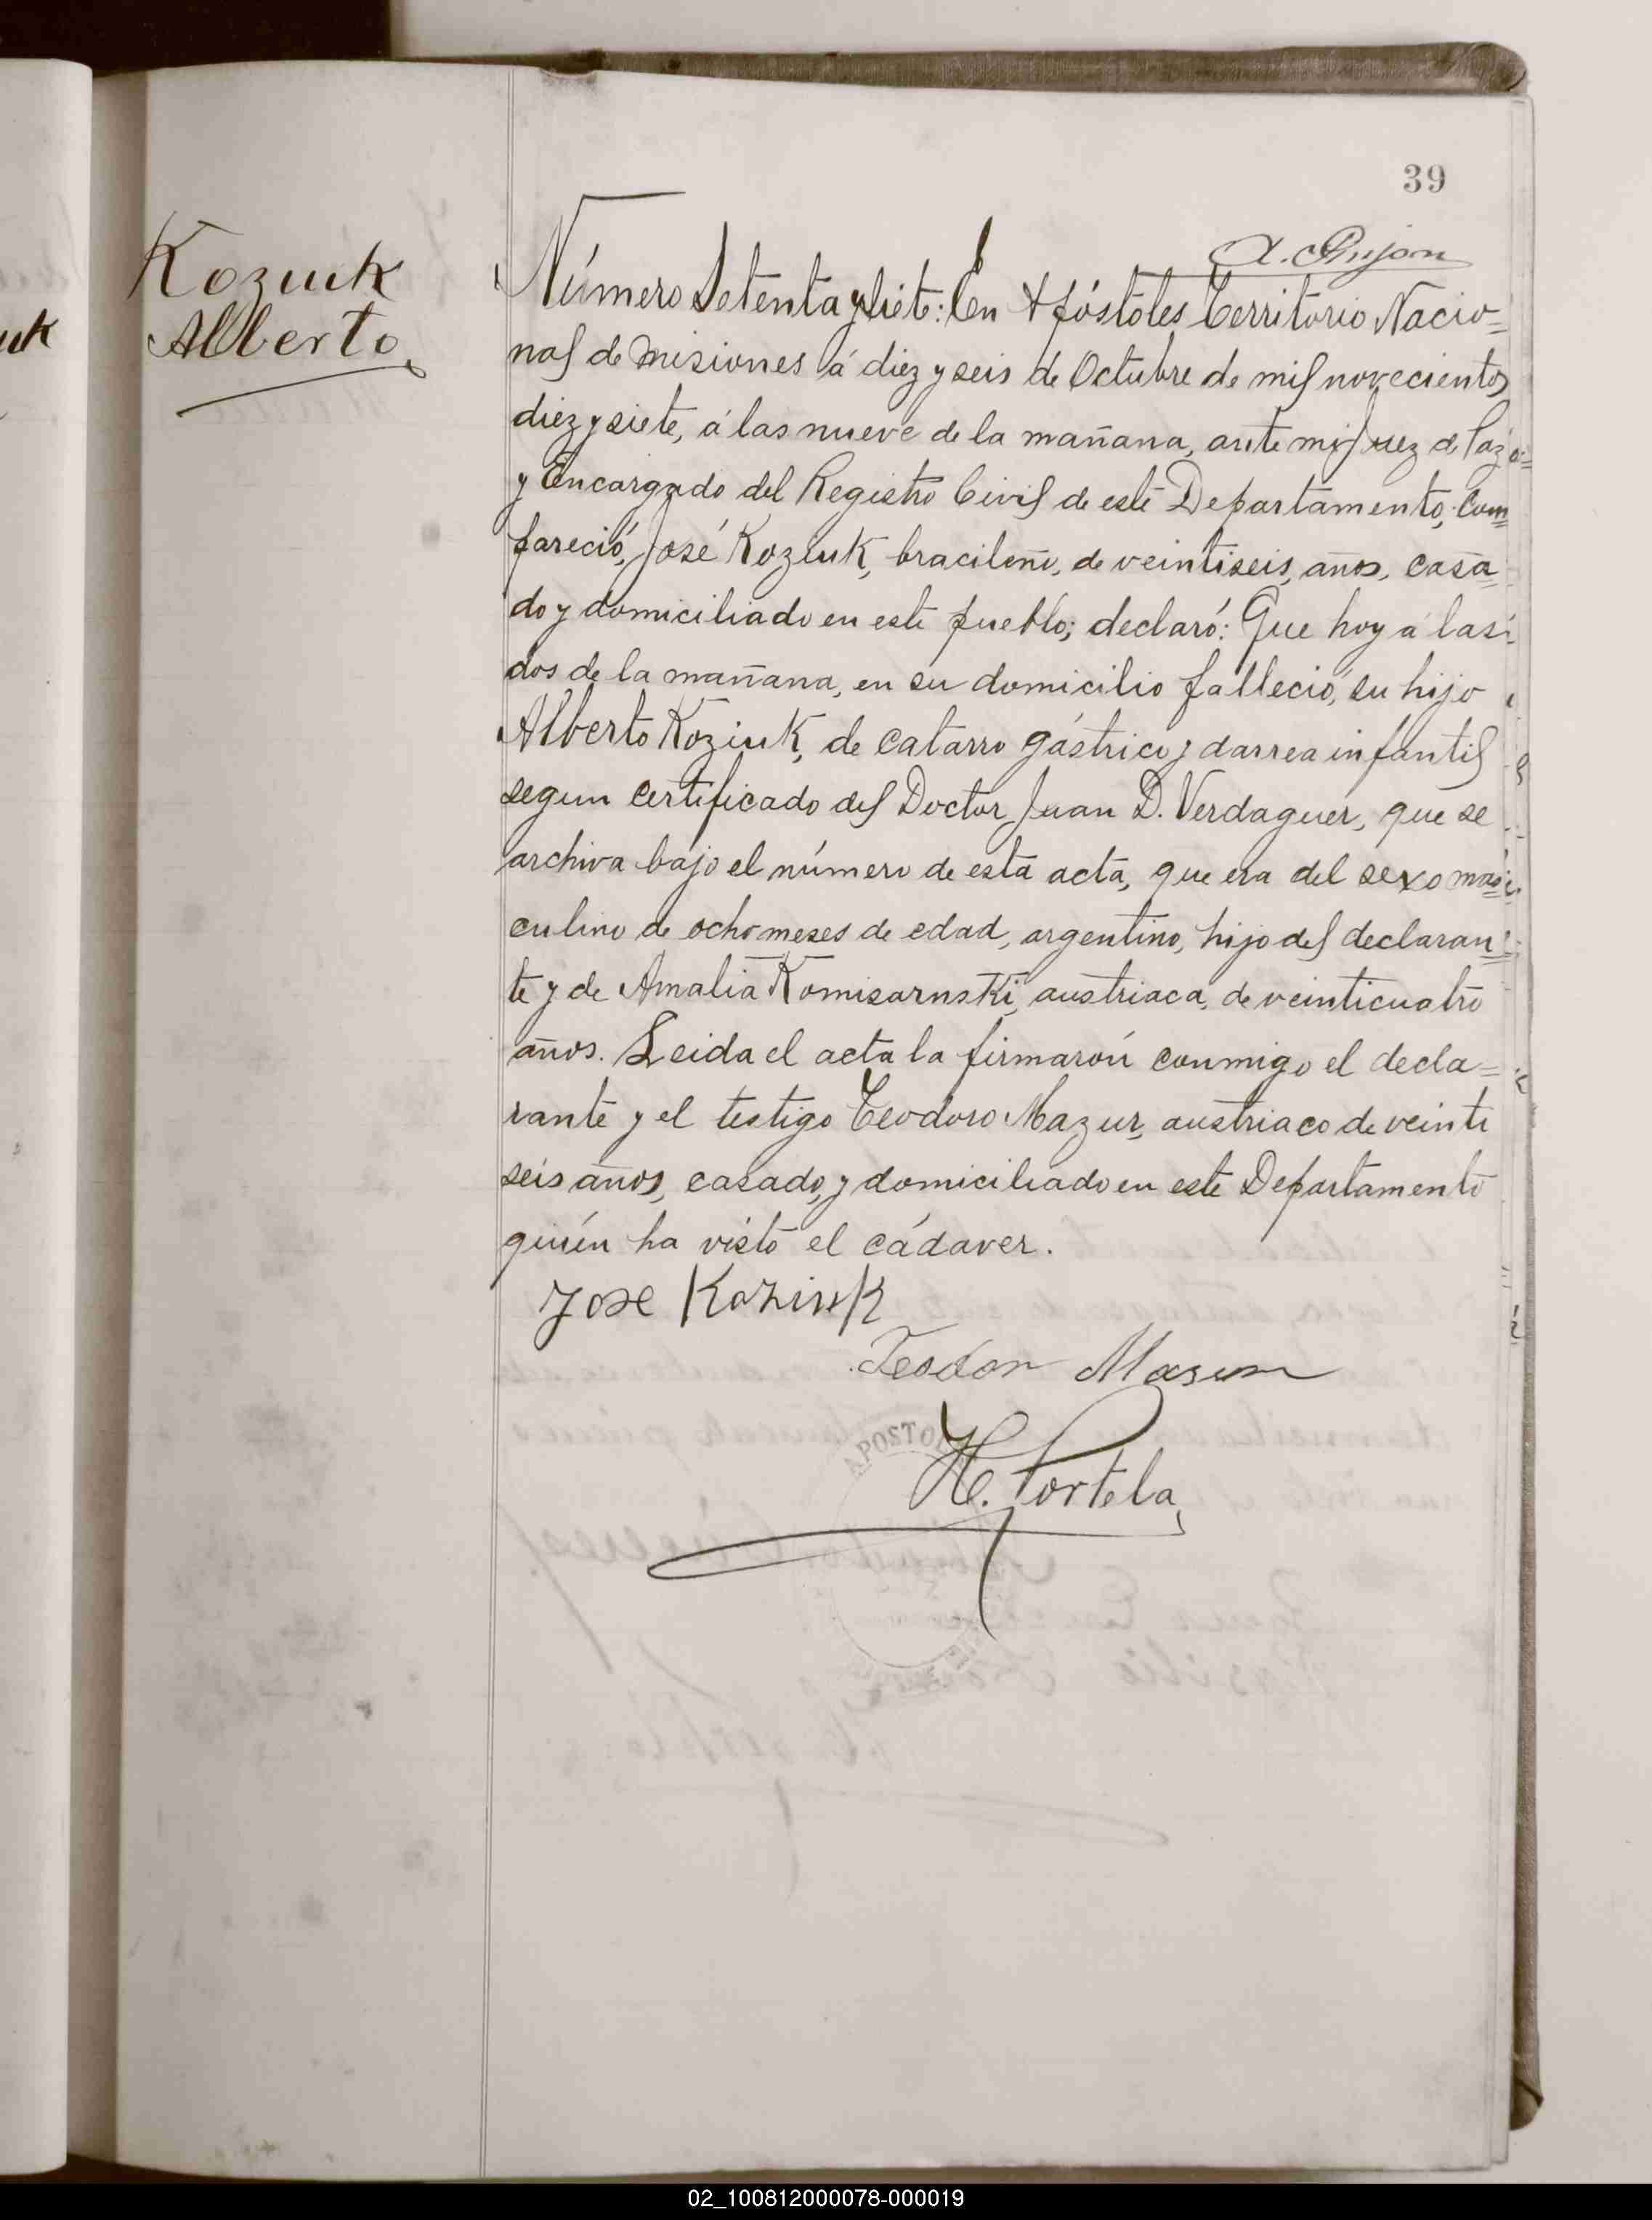 39
Koziuk
Alberto
Número Setenta y siete: En Apóstoles Territorio Nacio=
nal de Misiones á diez y seis de Octubre de mil novecientos
diez y siete, á las nueve de la mañana, ante mi Juez de Paz
y Encargado del Registro Civil de este Departamento, com=
pareció, José Koziuk, bracileño, de veintiseis, años, casa=
do y domiciliado en este pueblo; declaró: Que hoy á las
dos de la mañana, en su domicilio falleció, su hijo
Alberto Koziuk, de catarro gástrico y darrea infantil
segun certificado del Doctor Juan D. Verdaguer, que se
archiva bajo el número de esta acta, que era del sexo mas=
culino de ocho meses de edad, argentino, hijo del declaran=
te y de Amalia Komisarnski, austriaca, de veinticuatro
años. Leida el acta la firmarón conmigo el decla=
rante y el testigo Teodoro Mazur, austriaco de veinti
seis años, casado, y domiciliado en este Departamento
quién ha visto el cádaver.
José Koziuk
Teodor Masur
APOSTOL
H. Portela
02_100812000078-000019